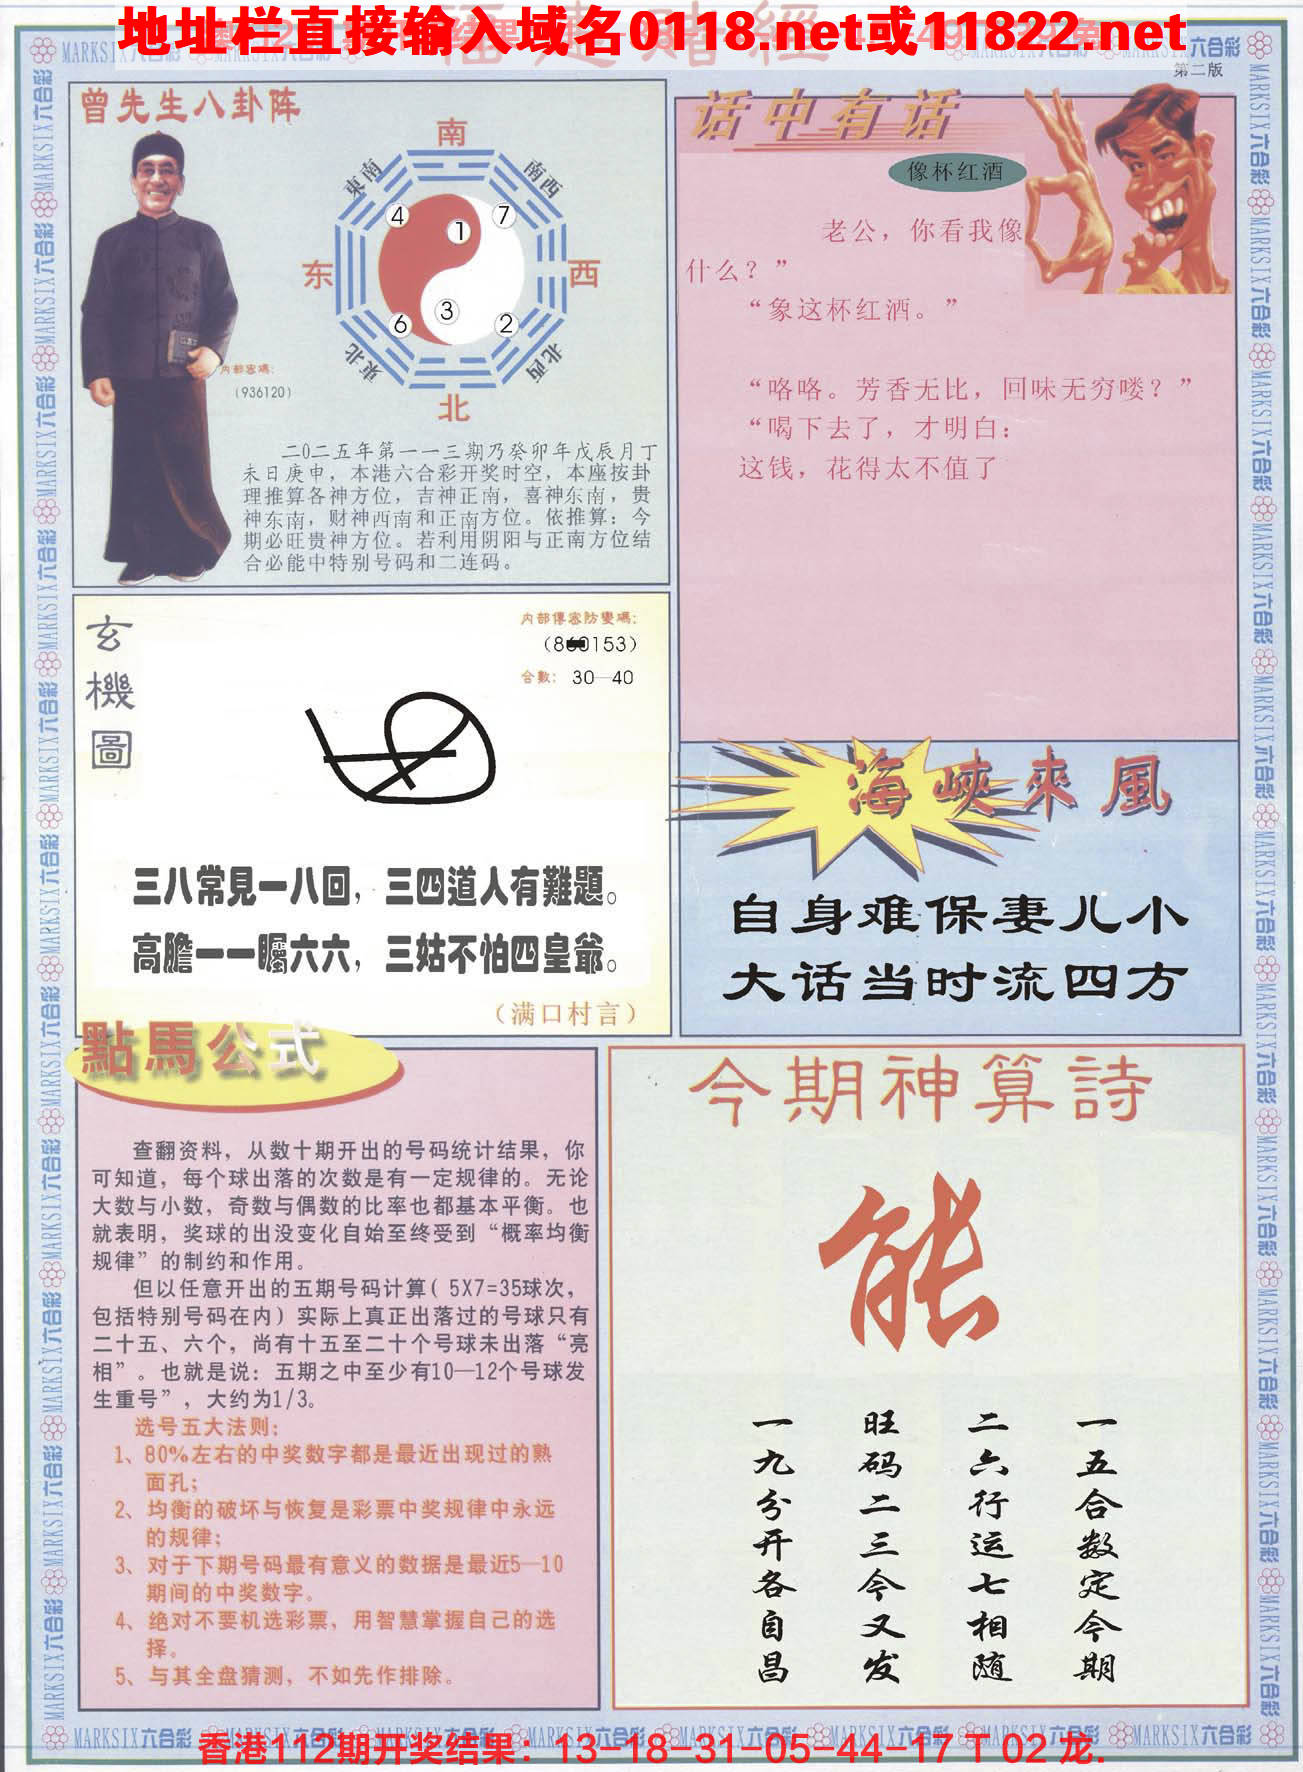 地址栏直接输入域名0118.net或11822.net
第二版
曾先生八卦阵
南
東南
南西
4
7
1
东
西
3
6
2
東北
北西
北
内部密碼:
(936120)
二0二五年第一一三期乃癸卯年戊辰月丁
未日庚申，本港六合彩开奖时空，本座按卦
理推算各神方位，吉神正南，喜神东南，贵
神东南，财神西南和正南方位。依推算：今
期必旺贵神方位。若利用阴阳与正南方位结
合必能中特别号码和二连码。
话中有话
像杯红酒
老公，你看我像
什么？”
“象这杯红酒。”
“咯咯。芳香无比，回味无穷喽？”
“喝下去了，才明白：
这钱，花得太不值了
玄機圖
内部傳密防變碼:
合數: 30—40
三八常見一八回，三四道人有難題。
高膽一一矚六六，三姑不怕四皇爺。
（满口村言）
海峽來風
自身难保妻儿小
大话当时流四方
點馬公式
查翻资料，从数十期开出的号码统计结果，你
可知道，每个球出落的次数是有一定规律的。无论
大数与小数，奇数与偶数的比率也都基本平衡。也
就表明，奖球的出没变化自始至终受到“概率均衡
规律”的制约和作用。
但以任意开出的五期号码计算( 5X7=35球次，
包括特别号码在内）实际上真正出落过的号球只有
二十五、六个，尚有十五至二十个号球未出落“亮
相”。也就是说：五期之中至少有10—12个号球发
生重号”，大约为1/3。
选号五大法则：
1、80%左右的中奖数字都是最近出现过的熟
面孔；
2、均衡的破坏与恢复是彩票中奖规律中永远
的规律；
3、对于下期号码最有意义的数据是最近5—10
期间的中奖数字。
4、绝对不要机选彩票，用智慧掌握自己的选
择。
5、与其全盘猜测，不如先作排除。
今期神算詩
能
一五合数定今期
二六行运七相随
旺码二三今又发
一九分开各自昌
MARKSIX六合彩
香港112期开奖结果：13-18-31-05-44-17 T 02 龙.